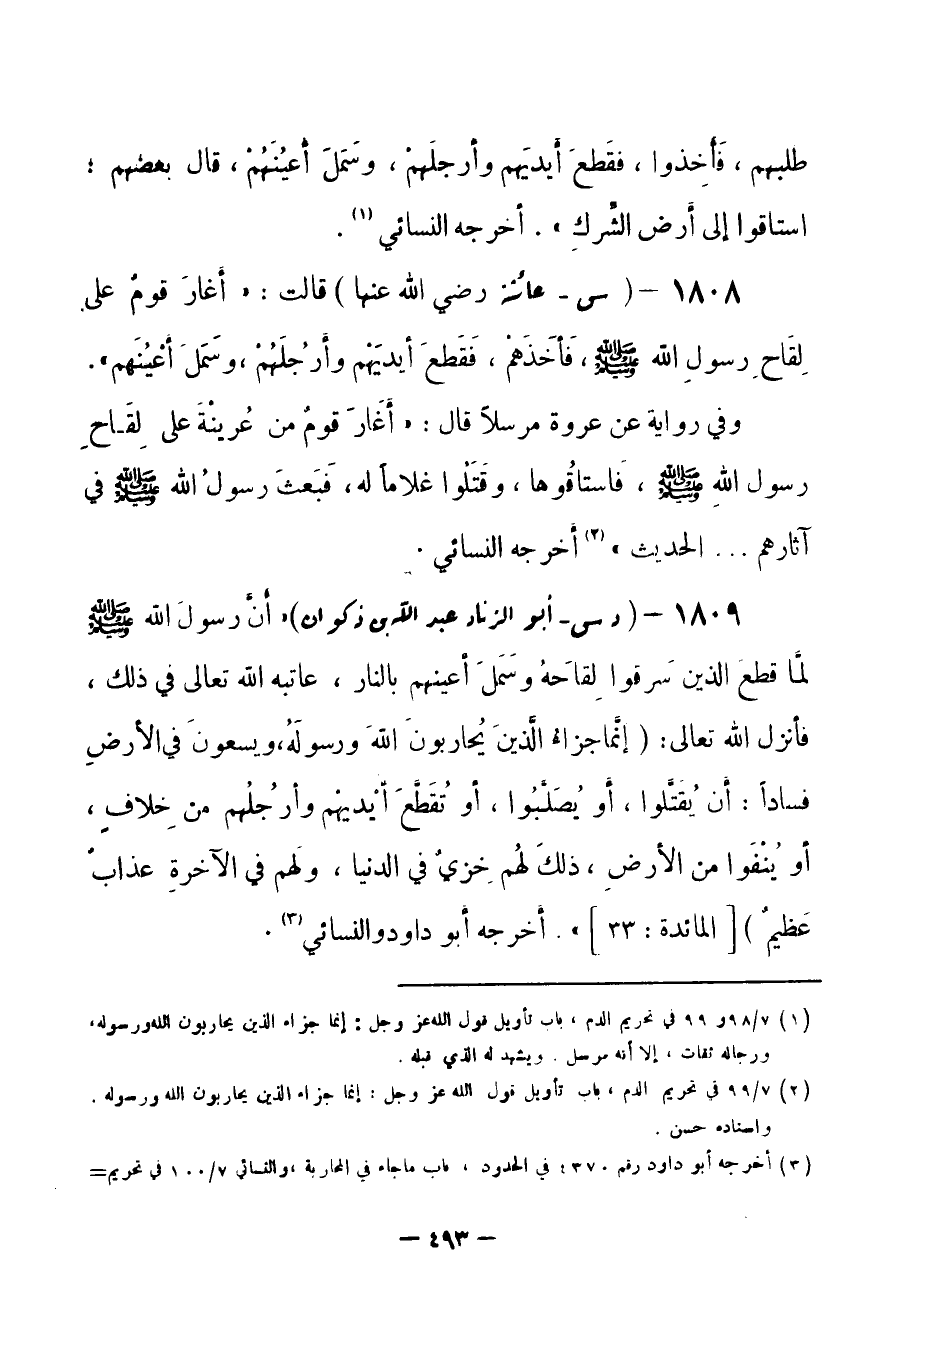 طلبهم ، فَأُخِذوا ، فقَطعَ أَيديَهم وأَرجلَهمْ ، وسَمَلَ أَعيُنَهُمْ ، قال بعضهم ؛
استاقوا إلى أَرض الشِّركِ » . أخرجه النسائي (١) .
١٨٠٨ – ( سي – عائشة رضي الله عنها ) قالت : « أَغارَ قومٌ على
لِقَاحِ رسولِ الله ﷺ ، فَأَخَذَهمْ ، فَقَطعَ أيديَهُم وأَرْجُلَهُمْ ، وسَمَلَ أَعْيُنَهم » .
وفي رواية عن عروة مرسلاً قال : « أَغَارَ قومٌ من عُرينْةَ على لِقَـاحِ
رسول اللهِ ﷺ ، فَاستاقُوها ، وقَتَلُوا غلاماً له ، فَبَعثَ رسولُ الله ﷺ في
آثارهم ... الحديث » (٢) أخرجه النسائي .
١٨٠٩ – ( د سي – أبو الزناد عبد الله بن ذكوان ) « أَنَّ رسولَ الله ﷺ
لمَّا قطعَ الذين سَرقوا لِقاحَهُ وسَمَلَ أَعينهم بالنار ، عاتبه الله تعالى في ذلك ،
فأنزل الله تعالى : ( إنَّما جزاءُ الَّذينَ يُحاربونَ اللهَ ورسولَهُ ، ويسعونَ في الأرضِ
فساداً : أَن يُقَتَّلوا ، أَو يُصَلَّبُوا ، أو تُقَطَّعَ أَيْديهْم وأَرجُلُهم من خِلافٍ ،
أو يُنْفَوا من الأرضِ ، ذلكَ لهُم خِزيٌ في الدنيا ، ولَهم في الآخرةِ عذابٌ
عَظيمٌ ) [ المائدة : ٣٣ ] » . أَخرجه أَبو داود والنسائي (٣) .
(١) ٩٨/٧ و ٩٩ في تحريم الدم ، باب تأويل قول الله عز وجل : إنما جزاء الذين يحاربون الله ورسوله ،
ورجاله ثقات ، إلا أنه مرسل . ويشهد له الذي قبله .
(٢) ٩٩/٧ في تحريم الدم ، باب تأويل قول الله عز وجل : إنما جزاء الذين يحاربون الله ورسوله .
وإسناده حسن .
(٣) أخرجه أبو داود رقم ٤٣٧٠ في الحدود ، باب ماجاء في المحاربة ، والنسائي ١٠٠/٧ في تحريم=
– ٤٩٣ –